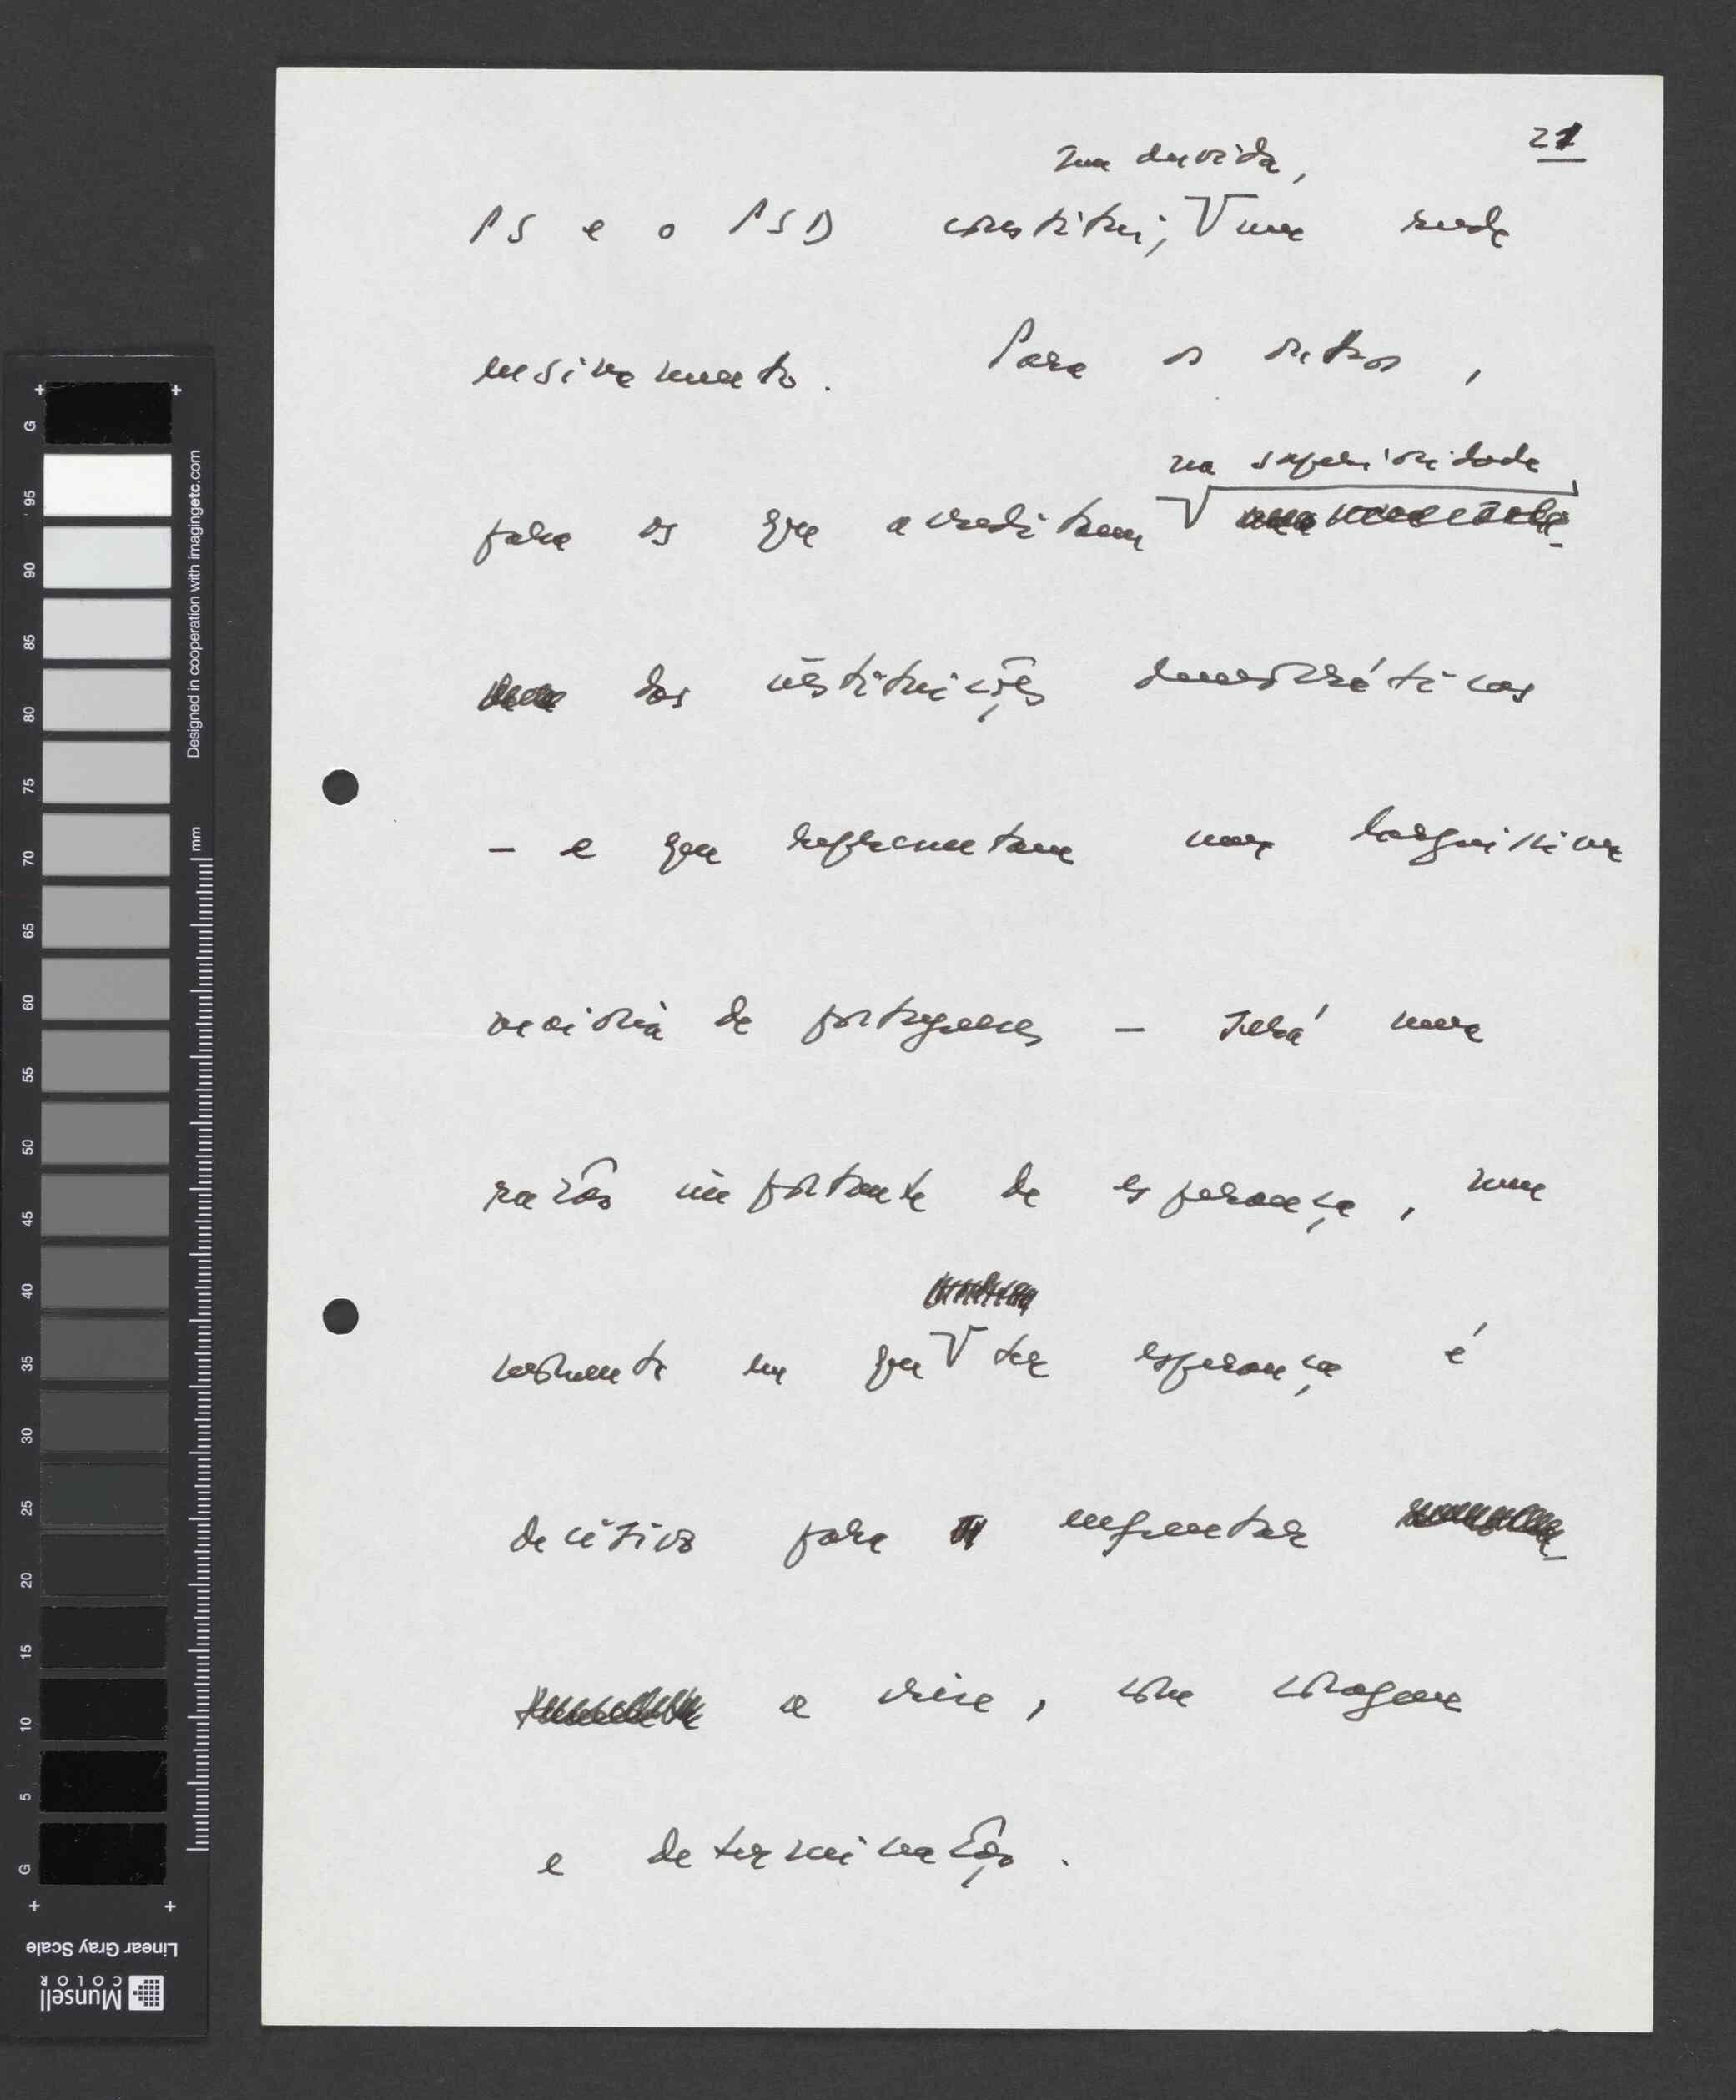 21
sem duvida,
PS e o PSD constitui, V um rude
ensinamento. Para os outros,
na superioridade
para os que acreditam V
das instituições democráticas
– e que representam uma larguíssima
maioria de portugueses – será uma
razão importante de esperança, num
momento em que V ter esperança é
decisivo para enfrentar
a crise, com coragem
e determinação.
G
95
90
85
80
75
70
65
60
55
50
45
40
35
30
25
20
15
10
5
G
Designed in cooperation with imagingetc.com
mm
Linear Gray Scale
Munsell
COLOR